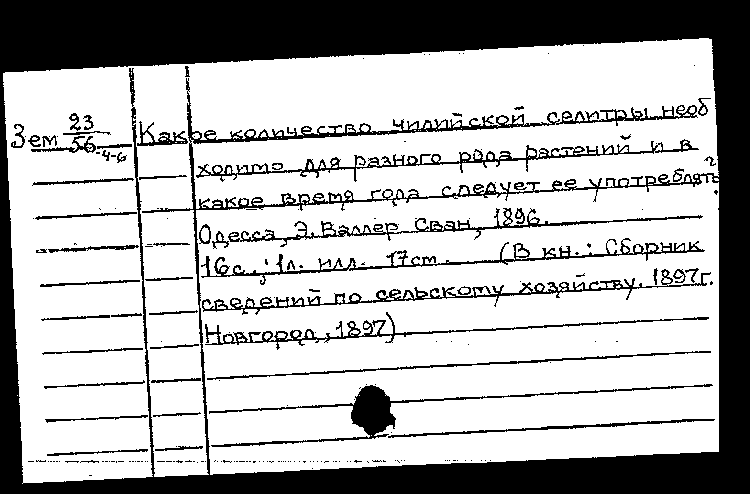 Зем 23/56-4-6 Какое количество чилийской селитры необ
ходимо для разного рода растений и в
какое время года следует ее употреблять?
Одесса, Э. Валлер Сван, 1896.
16с.; 1л. илл. 17см. (В кн.: Сборник
сведений по сельскому хозяйству. 1897г.
Новгород, 1897).